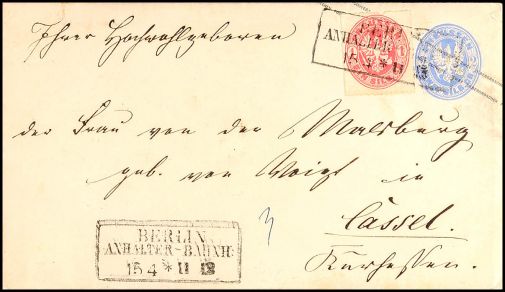 Ihrer Hochwohlgeboren
BERLIN
ANHALTER
15 4 * 11
der Frau von der Malsburg
geb. von Voigt in
Cassel.
Kurhessen.
BERLIN
ANHALTER-BAHNH:
15 4 * 11 12